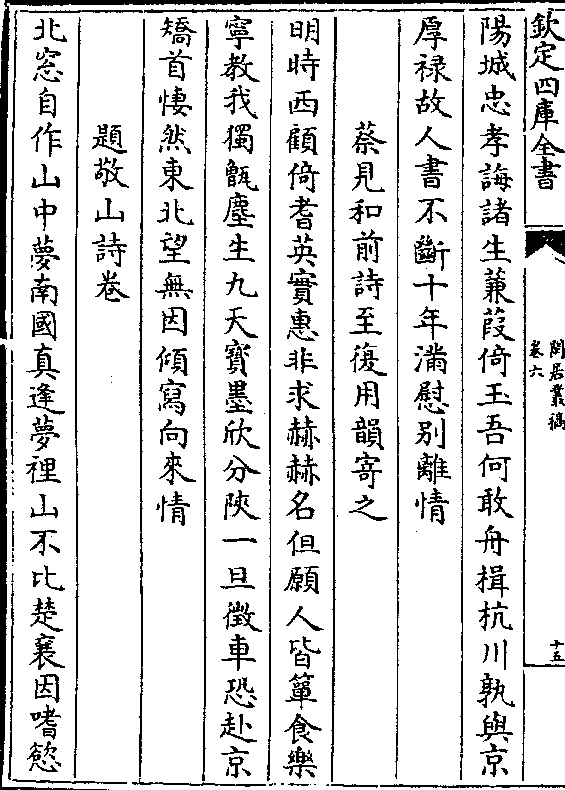 欽定四庫全書
閒居叢稿
卷六
十五
陽城忠孝誨諸生蒹葭倚玉吾何敢舟楫杭川孰與京
厚禄故人書不斷十年滿慰别離情
蔡見和前詩至復用韻寄之
明時西顧倚耆英實惠非求赫赫名但願人皆簞食樂
寧教我獨甑塵生九天寳墨欣分陜一旦徴車恐赴京
矯首悽然東北望無因傾寫向來情
題敬山詩卷
北窓自作山中夢南國真逢夢裡山不比楚襄因嗜慾